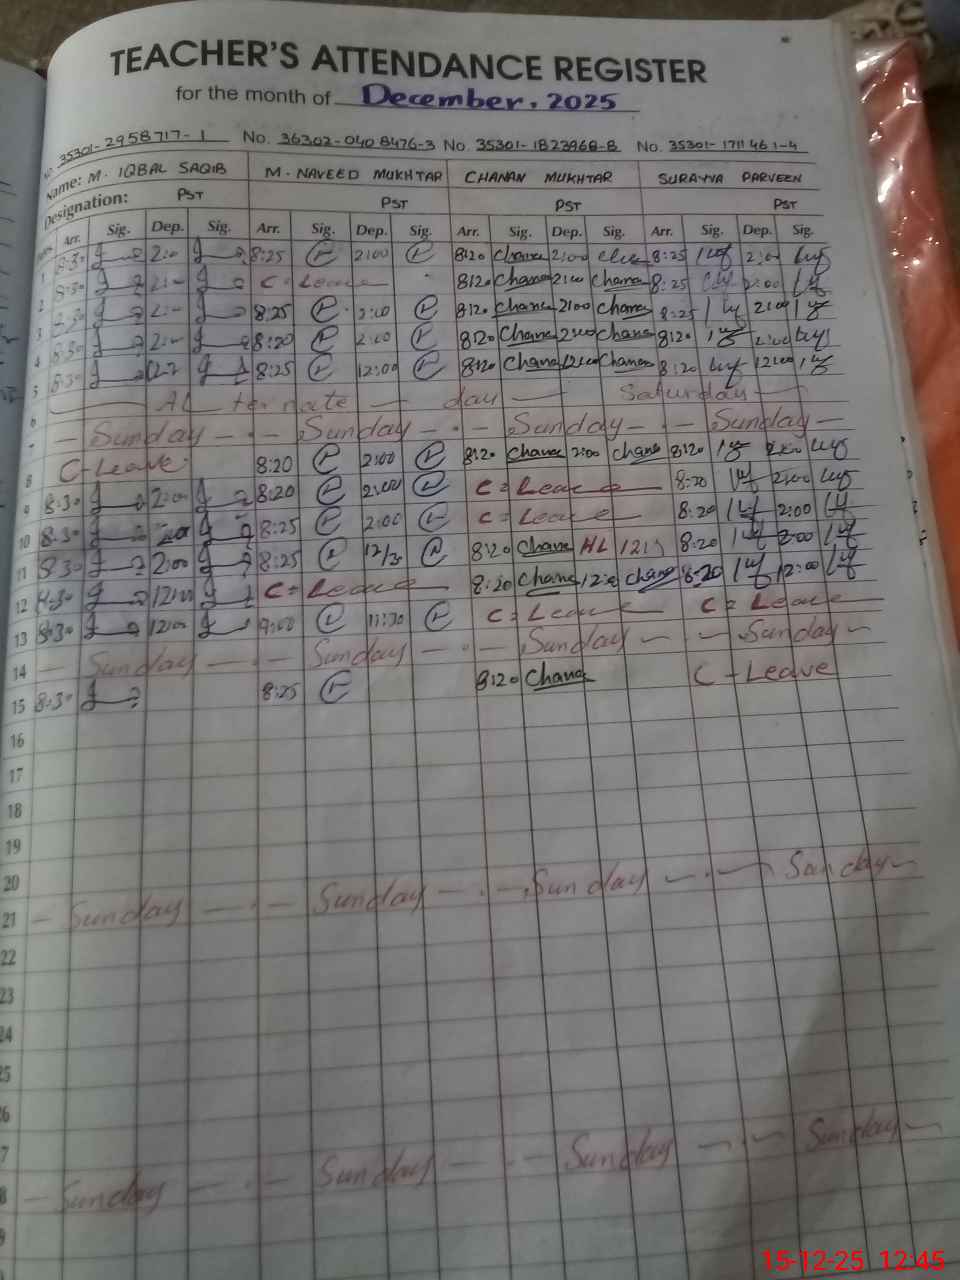 TEACHER'S ATTENDANCE REGISTER
for the month of December, 2025
No. 35301-2958717-1 No. 36302-0408476-3 No. 35301-1823968-8 No. 35301-1711461-4
Name: M. IQBAL SAQIB M. NAVEED MUKHTAR CHANAN MUKHTAR SURAYYA PARVEEN
Designation: PST PST PST PST
Arr. Sig. Dep. Sig. Arr. Sig. Dep. Sig. Arr. Sig. Dep. Sig. Arr. Sig. Dep. Sig.
1 8:30 2:00 8:25 2:00 8:20 Chanan 2:00 8:25 2:00
2 8:30 2:00 C-Leave 8:20 Chanan 2:00 Chanan 8:25 2:00
3 8:30 2:00 8:25 2:00 8:20 Chanan 2:00 Chanan 8:25 2:00
4 8:30 2:00 8:20 2:00 8:20 Chanan 2:00 Chanan 8:20 2:00
5 8:30 8:25 12:00 8:20 Chanan 12:00 Chanan 8:20 12:00
6 Alternate day Saturday
7 Sunday Sunday Sunday Sunday
8 C-Leave 8:20 2:00 8:20 Chanan 2:00 Chanan 8:20 2:00
9 8:30 2:00 8:20 2:00 C=Leave 8:20 2:00
10 8:30 2:00 8:25 2:00 C=Leave 8:20 2:00
11 8:30 2:00 8:25 12/30 8:20 Chanan HL 8:20 2:00
12 8:30 12:00 C=Leave 8:20 Chanan 12:00 Chanan 8:20 12:00
13 8:30 12:00 9:00 11:30 C=Leave C=Leave
14 Sunday Sunday Sunday Sunday
15 8:30 8:25 8:20 Chanan C-Leave
16
17
18
19
20
21 Sunday Sunday Sunday Sunday
22
23
24
25
26
27
28 Sunday Sunday Sunday Sunday
15-12-25 12:45